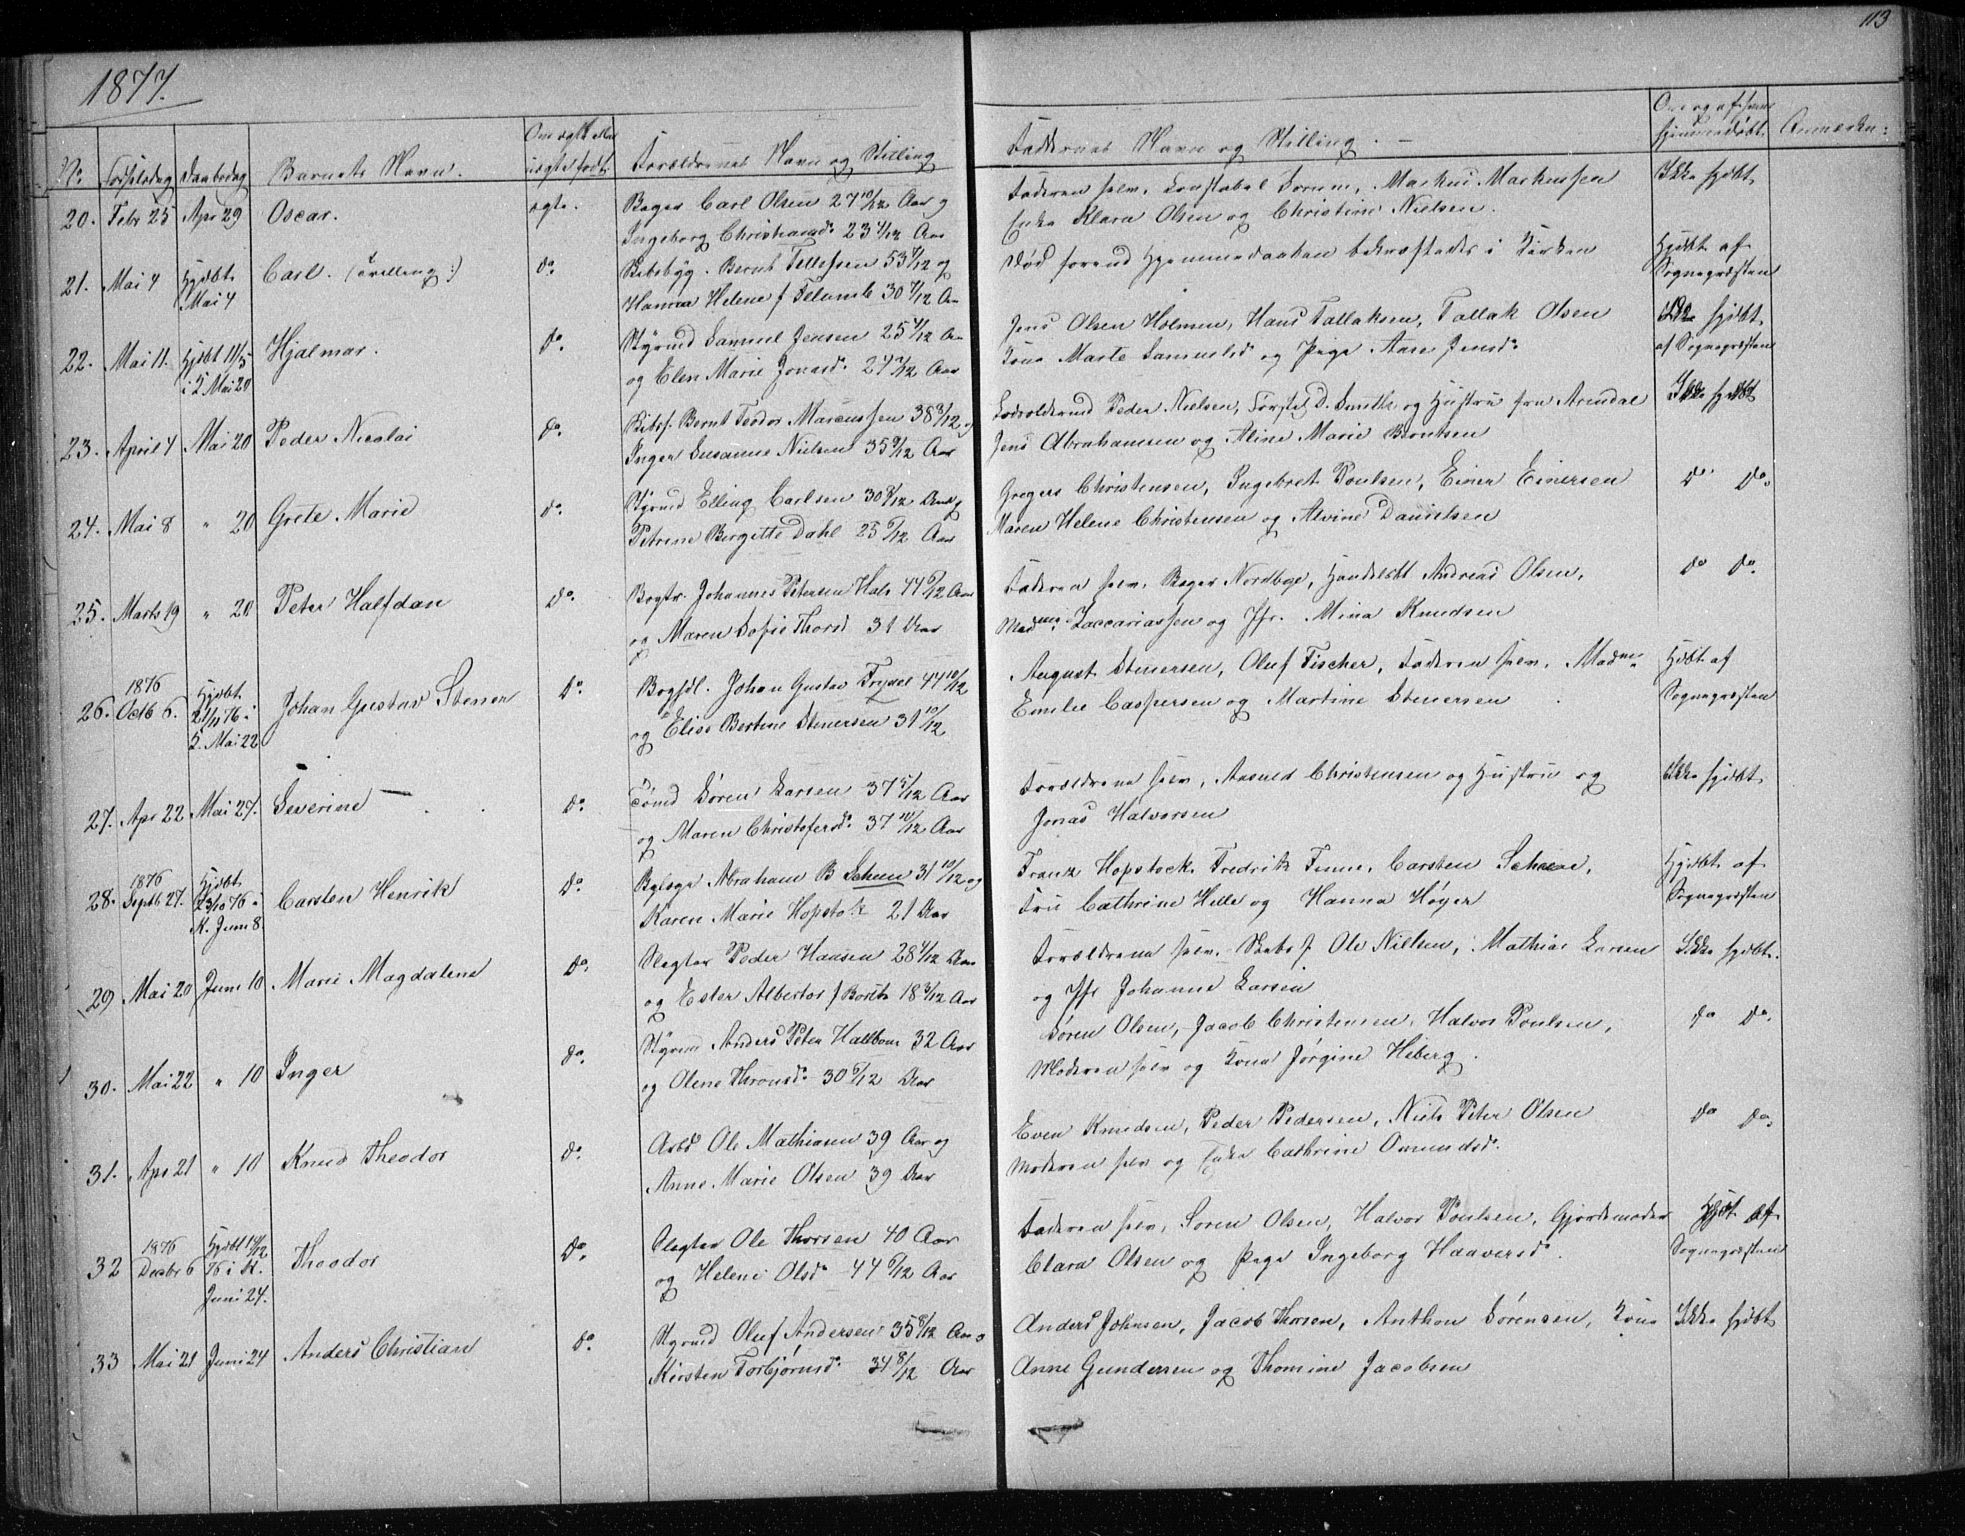 113
1877.
No. Fødselsdag Daabsdag Barnets Navn. Om ægte eller uægte født. Forældrenes Navn og Stilling Faddernes Navn og Stilling. Om og af hvem hjemmedøbt. Anmærkn:
20. Febr 25 Apr 29 Oscar. ægte. Bager Carl Olsen 27 10/12 Aar og Faderen selv, Konstabel Sorum, Markus Markussen Ikke hjdbt
Ingeborg Christiansd. 23 4/12 Aar Enke Klara Olsen og Christine Nielsen.
21. Mai 4 Hjdbt Carl. (tvilling:) do. Skibsbyg. Bernt Tellefsen 53 7/12 og Død forend Hjemmedaaben bekræftedes i Kirken Hjdbt af
Mai 4 Hanna Helene f Telumb 30 4/12 Aar Sognepræsten
22. Mai 11. Hjdbt 11/5 Hjalmar. do. Styrmd Samuel Jensen 25 4/12 Aar Jens Olsen Holmen, Hans Tallaksen, Tallak Olsen hjdbt
i K Mai 20 og Elen Marie Jonasd. 24 2/12 Aar Kone Marte Samuelsd og Pige Aase Jensd. af Sognepræsten
23. April 4 Mai 20 Peder Nicolai do. Skibsf. Bernt Teodor Marcussen 38 3/12 og Peder Nielsen, D. Smith og Hustru fra Arendal Ikke hjdbt
Inger Susanne Nielsen 35 9/12 Aar Jens Abrahamsen og Aline Marie Berntsen
24. Mai 8 " 20 Grete Marie do. Styrmd Elling Carlsen 30 8/12 Aar og Gregers Christensen, Ingebret Poulsen, Einer Einersen do do.
Petrine Birgitte Dahl 25 6/12 Aar Maren Helene Christensen og Alvine Danielsen
25. Marts 19 " 20 Peter Halfdan do. Bogtr. Johannes Petersen Hals 44 6/12 Aar Faderen selv, Bager Nordbøe, Handelsbt Andreas Olsen, do do.
og Maren Sofie Thorsd 31 Aar Madme. Zaccariassen og Jfr. Mina Knudsen
26. 1876 Octb 6. Hjdbt 21/11 76 i K. Mai 22 Johan Gustav Stener do. Johan Gustav Trysel 44 10/12 August Stenersen, Oluf Fischer, Faderen selv, Madme. Hjdbt af
og Elise Bertine Stenersen 31 10/12 Emilie Caspersen og Martine Stenersen Sognepræsten
27. Apr 22 Mai 27. Severine do. Tømd Søren Larsen 37 5/12 Aar Forældrene selv, Aanud Christensen og Hustru og Ikke hjdbt
og Maren Christofersd. 37 10/12 Aar Jonas Halvorsen
28. 1876 Septb 27. Hjdbt 23/10 76 i K. Juni 8 Carsten Henrik do. Abraham B Scheen 31 10/12 og Franz Hopstock, Fredrik Finne, Carsten Scheen, Hjdbt af
Karen Marie Hopstok 21 Aar Fru Cathrine Helle og Hanna Høyer Sognepræsten
29 Mai 20 Juni 10 Marie Magdalene do. Slagter Peder Hansen 28 4/12 Aar Forældrene selv, Skibsf Ole Nielsen, Mathias Larsen Ikke hjdbt.
og Ester Albertor f Borets 18 3/12 Aar og Jfr Johanne Larsen
30. Mai 22 " 10 Inger do. Styrmd Anders Peter Hallbom 32 Aar Søren Olsen, Jacob Christensen, Halvor Poulsen, do do.
og Olene Thronsd. 30 6/12 Aar Moderen selv og Kone Jørgine Heberg.
31. Apr 21 " 10 Knud Theodor do. Arbd Ole Mathiasen 39 Aar og Even Knudsen, Peder Pedersen, Niels Peter Olsen do do.
Anne Marie Olsen 39 Aar Moderen selv og Enke Cathrine Omundsd.
32 1876 Decbr 6 Hjdbt 14/12 76 i K. Juni 24. Theodor do. Slagter Ole Thorsen 40 Aar Faderen selv, Soren Olsen, Halvor Poulsen, Gjordemoder Hjdbt af
og Helene Olsd. 44 6/12 Aar Clara Olsen og Pige Ingeborg Haaversd. Sognepræsten
33 Mai 21 Juni 24 Anders Christian do. Styrmd Oluf Andersen 35 8/12 Aar o Anders Johnsen, Jacob Thorsen, Anthon Sørensen, Kone Ikke hjdbt
Kirsten Torbjørnsd. 34 8/12 Aar Anne Gundersen og Thomine Jacobsen